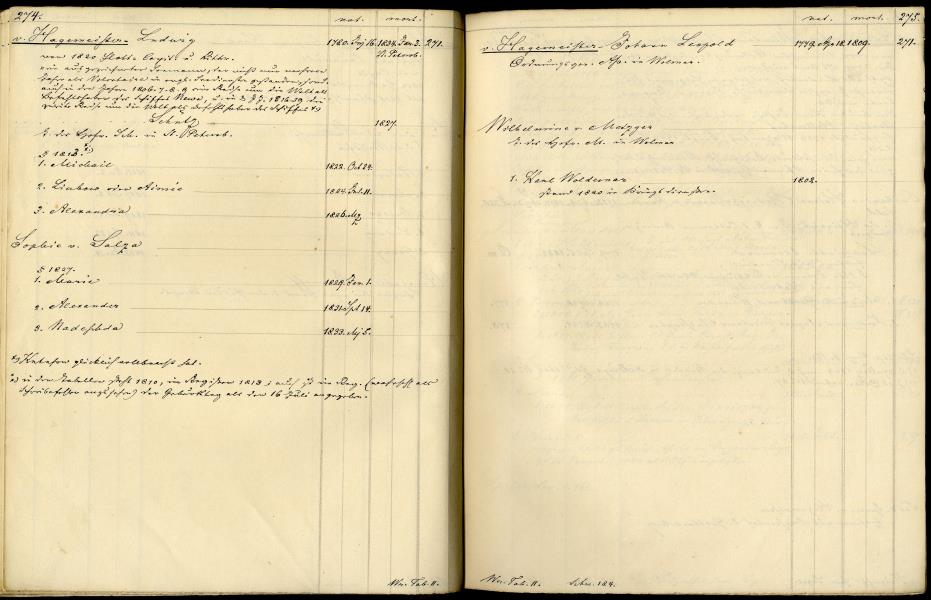 274.
nat. mort.
v. Hagemeister Ludwig 1780. Juj 16. 1834. Jan. 3. 271.
von 1820 Flott- Capit. u. Rittr. St. Petersb.
ein ausgezeichneter Seemann, der nicht nur mehrere
Jahr als Volontair in engl. Seediensten gestanden, sond.
auch in den Jahren 1806. 7. 8. 9 eine Reise um die Welt als
Befehlshaber des Schiffes Newa, u. in d. J. J. 1816-19 die
zweite Reise um die Welt als Befehlshaber des Schiffes *)
Schultz 1827.
T. des Hofr. Sch. in St. Petersb.
§ 1813. a)
1. Michail 1822. Oct 24.
2. Liubow oder Aimée 1824. Jul. 11.
3. Alexandra 1826.
Sophie v. Salza
§ 1827.
1. Marie 1829. Jan. 1.
2. Alexander 1831. Spt. 14.
3. Nadeshda 1833. Mj 5.
*) Kutusow glücklich vollbracht hat.
a) in den Tabellen steht 1810, im Register 1813; auch ist im Reg. (wohl
Schreibefehler anzusehen) der Geburtstag als den 16 Juli angegeben.
Mn. Tab. II.
nat. mort. 275.
v. Hagemeister Johann Leopold 1779. Apr 18. 1809. 271.
Ordnungsger. Adj. in Wolmar.
Wilhelmine v Metzger
T. des Hofr. M. in Wolmar
1. Karl Woldemar 1802.
stand 1820 in Kriegsdiensten.
Mn. Tab. II. 184.